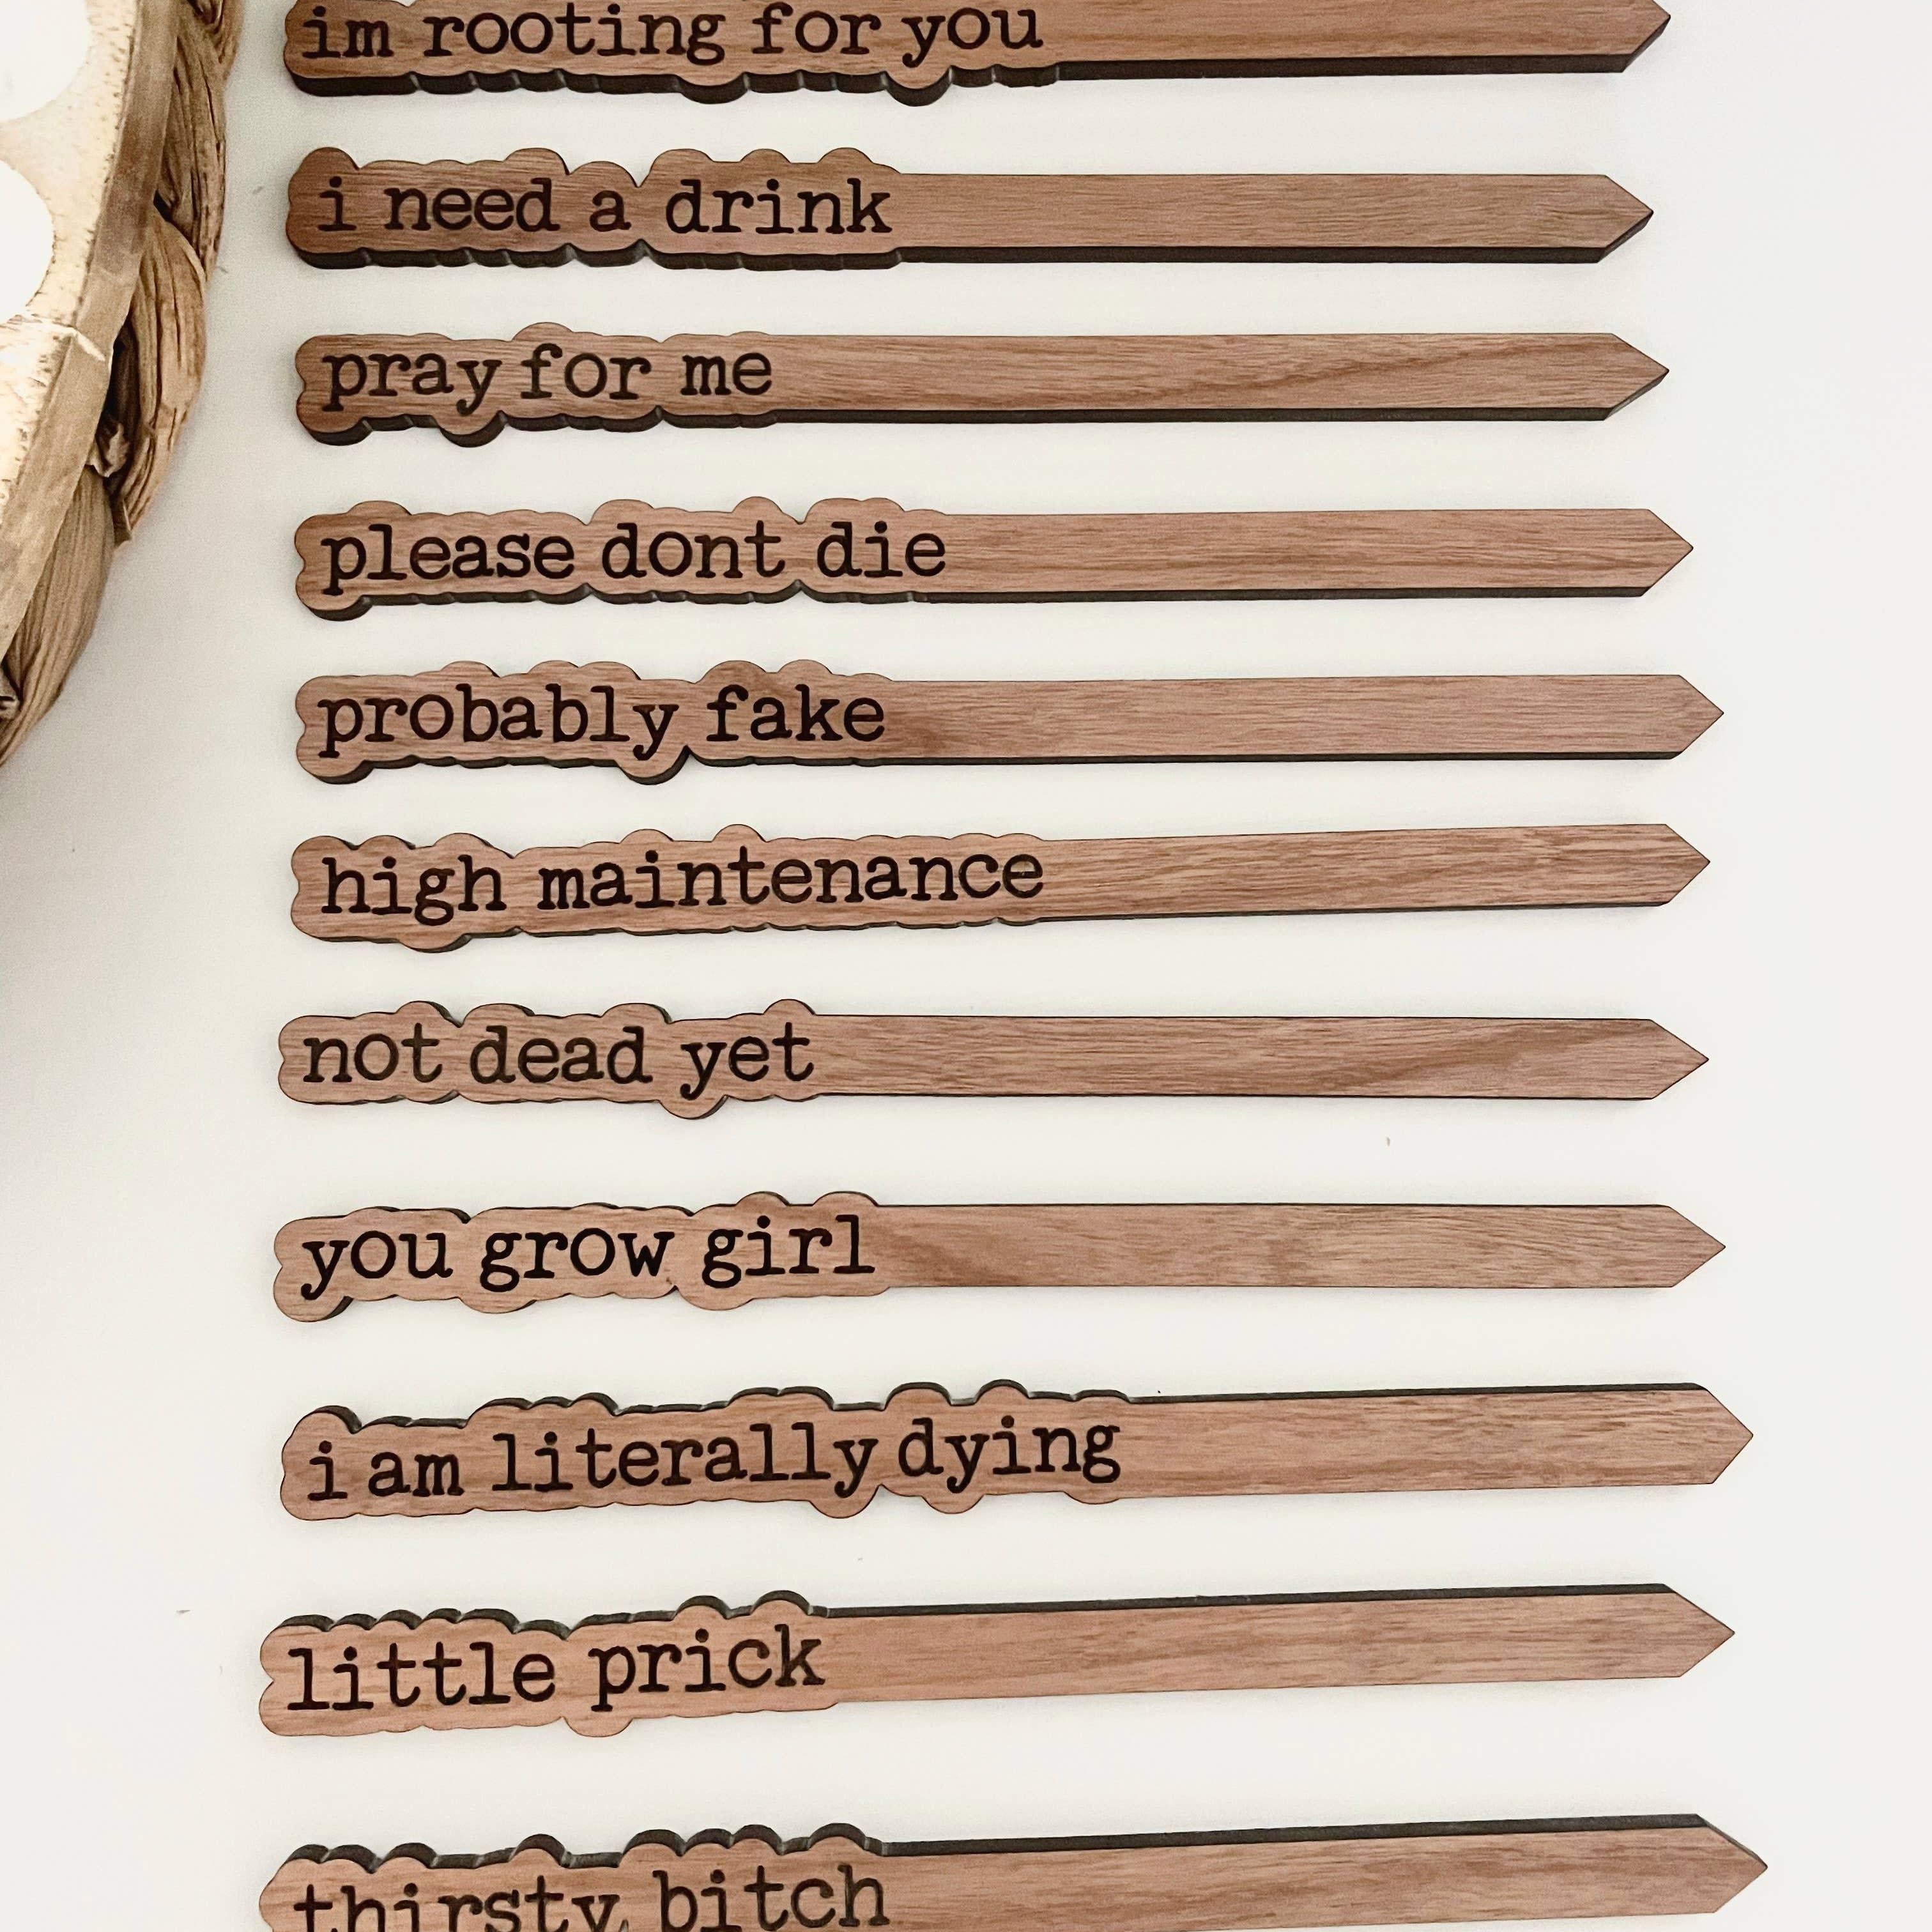 im rooting for you
i need a drink
pray for me
please dont die
probably fake
high maintenance
not dead yet
you grow girl
i am literally dying
little prick
thirsty bitch